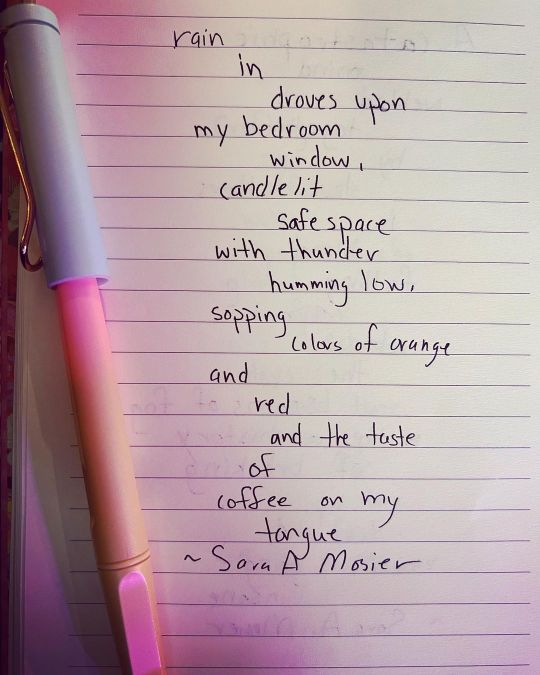 rain
in
droves upon
my bedroom
window,
candlelit
safe space
with thunder
humming low,
sopping
colors of orange
and
red
and the taste
of
coffee on my
tongue
~ Sara A Mosier